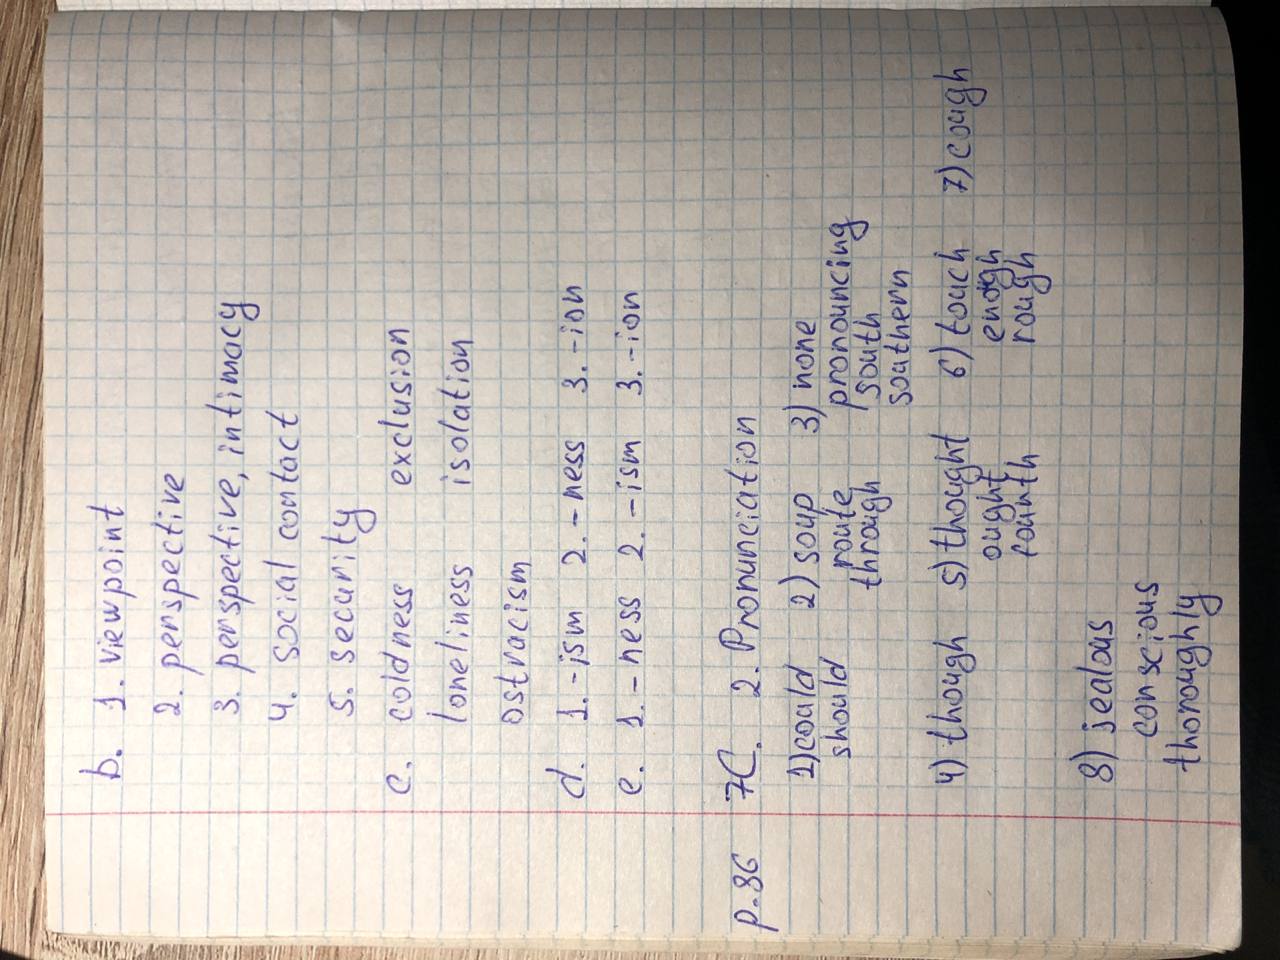 b. 1. viewpoint
2. perspective
3. perspective, intimacy
4. social contact
5. security
c. coldness exclusion
loneliness isolation
ostracism
d. 1. -ism 2. -ness 3. -ion
e. 1. -ness 2. -ism 3. -ion
p. 86 7C. 2. Pronunciation
1) could 2) soup 3) none
should route pronouncing
through south
southern
4) though 5) thought 6) touch 7) cough
ought enogh
rough
8) jealous
conscious
thoroughly